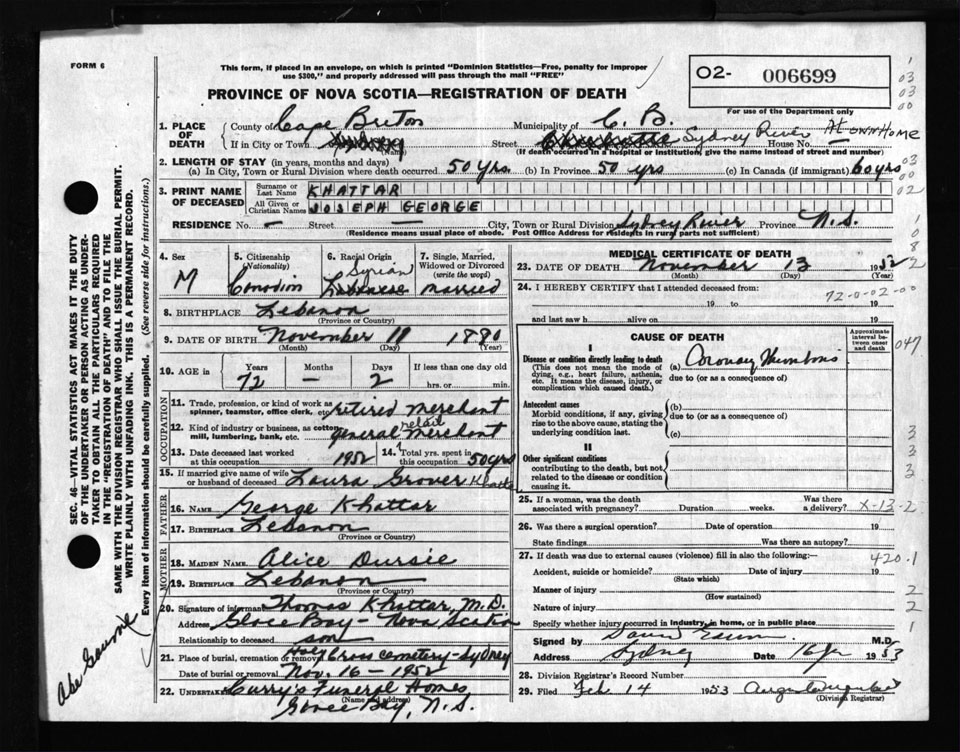 FORM 6
This form, if placed in an envelope, on which is printed "Dominion Statistics—Free, penalty for improper
use $300," and properly addressed will pass through the mail "FREE"
O2- 006699
PROVINCE OF NOVA SCOTIA—REGISTRATION OF DEATH
For use of the Department only
1. PLACE OF DEATH
County of Cape Breton Municipality of C. B.
If in City or Town Sydney Street Sydney River House No. At own Home
(If death occurred in a hospital or institution, give the name instead of street and number)
2. LENGTH OF STAY (in years, months and days)
(a) In City, Town or Rural Division where death occurred 50 yrs. (b) In Province 50 yrs (c) In Canada (if immigrant) 60 yrs
3. PRINT NAME OF DECEASED
Surname or Last Name KHATTAR
All Given or Christian Names JOSEPH GEORGE
RESIDENCE No. — Street — City, Town or Rural Division Sydney River Province N.S.
(Residence means usual place of abode. Post Office Address for residents in rural parts not sufficient)
4. Sex M
5. Citizenship (Nationality) Canadian
6. Racial Origin Syrian Lebanese
7. Single, Married, Widowed or Divorced (write the word) married
8. BIRTHPLACE Lebanon
(Province or Country)
9. DATE OF BIRTH November 11 1880
(Month) (Day) (Year)
10. AGE in Years 72 Months — Days 2 If less than one day old hrs. or min.
OCCUPATION
11. Trade, profession, or kind of work as spinner, teamster, office clerk, etc. retired merchant
12. Kind of industry or business, as cotton mill, lumbering, bank, etc. general retail merchant
13. Date deceased last worked at this occupation 1952 14. Total yrs. spent in this occupation 50 yrs
15. If married give name of wife or husband of deceased Laura Grover Khattar
FATHER
16. NAME George Khattar
17. BIRTHPLACE Lebanon
(Province or Country)
MOTHER
18. MAIDEN NAME Alice Dursie
19. BIRTHPLACE Lebanon
(Province or Country)
20. Signature of informant Thomas Khattar, M.D.
Address Glace Bay - Nova Scotia
Relationship to deceased son
21. Place of burial, cremation or removal Holy Cross Cemetery - Sydney
Date of burial or removal Nov. 16 - 1952
22. UNDERTAKER Curry's Funeral Homes
(Name and address)
Glace Bay, N.S.
MEDICAL CERTIFICATE OF DEATH
23. DATE OF DEATH November 13 1952
(Month) (Day) (Year)
24. I HEREBY CERTIFY that I attended deceased from:
72-0-02-00
19 to 19
and last saw h alive on 19
CAUSE OF DEATH
Approximate interval between onset and death
I
Disease or condition directly leading to death
(This does not mean the mode of dying, e.g., heart failure, asthenia, etc. It means the disease, injury, or complication which caused death.)
(a) Coronary Thrombosis
due to (or as a consequence of)
Antecedent causes
Morbid conditions, if any, giving rise to the above cause, stating the underlying condition last.
(b)
due to (or as a consequence of)
(c)
II
Other significant conditions contributing to the death, but not related to the disease or condition causing it.
25. If a woman, was the death associated with pregnancy? Duration weeks. Was there a delivery? X-13-2
26. Was there a surgical operation? Date of operation 19
State findings Was there an autopsy?
27. If death was due to external causes (violence) fill in also the following:—
420.1
Accident, suicide or homicide? Date of injury 19
(State which)
Manner of injury
(How sustained)
Nature of injury
Specify whether injury occurred in industry, in home, or in public place
Signed by M.D.
Address Sydney Date 16 1953
28. Division Registrar's Record Number
29. Filed Feb 14 1953
(Division Registrar)
SEC. 46 VITAL STATISTICS ACT MAKES IT THE DUTY
OF THE UNDERTAKER OR PERSON ACTING AS UNDER-
TAKER TO OBTAIN ALL THE PARTICULARS REQUIRED
IN THE "REGISTRATION OF DEATH" AND TO FILE THE
SAME WITH THE DIVISION REGISTRAR WHO SHALL ISSUE THE BURIAL PERMIT.
WRITE PLAINLY WITH UNFADING INK. THIS IS A PERMANENT RECORD.
Every item of information should be carefully supplied. (See reverse side for instructions.)
1
03
03
00
03
00
02
1
0
8
2
047
3
3
3
2
2
1